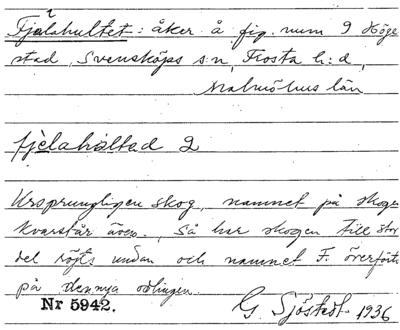 Fjelahultet: åker å fig. num 9 Höge
stad, Svensköps s:n, Frosta h:d,
Malmöhus län
fjelahåltad 2
Ursprungligen skog, namnet på skogen
kvarstår även. Så har skogen till stor
del röjts undan och namnet F. överförts
på den nya odlingen.
Nr 5942.
G. Sjöstedt 1936